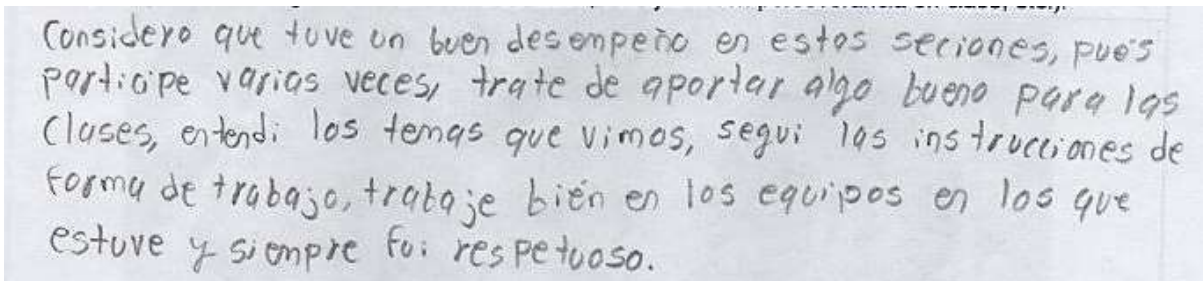 Considero que tuve un buen desempeño en estas seciones, pues
participe varias veces, trate de aportar algo bueno para las
clases, entendi los temas que vimos, segui las instrucciones de
forma de trabajo, trabaje bién en los equipos en los que
estuve y siempre fui respetuoso.